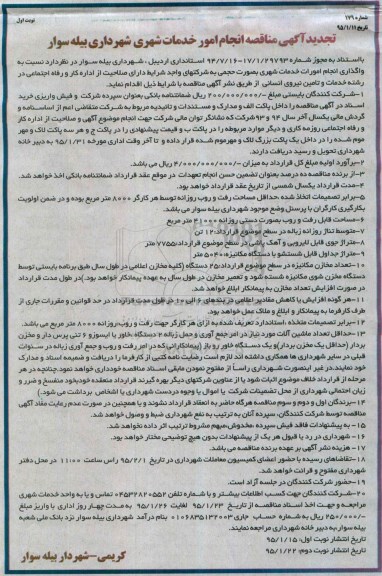 شماره ۱۷۹
تاریخ ۹۵/۱/۱۱
نوبت اول
تجدید آگهی مناقصه انجام امور خدمات شهری شهرداری بیله سوار
بااستناد به مجوز شماره ۱۷/۱/۲۹۷۹۳-۹۴/۷/۱۶ استانداری اردبیل ، شهرداری بیله سوار در نظردارد نسبت به
واگذاری انجام امورات خدمات شهری بصورت حجمی به شرکتهای واجد شرایط دارای صلاحیت از اداره کار و رفاه اجتماعی در
رشته خدمات و تامین نیروی انسانی از طریق نشر آگهی مناقصه با شرایط ذیل اقدام نماید.
۱-شرکت کنندگان بایستی مبلغ ۲۰۰/۰۰۰/۰۰۰ ریال ضمانتنامه بانکی بعنوان سپرده شرکت و فیش واریزی خرید
اسناد در آگهی مناقصه را داخل پاکت الف و مدارک و مستندات و تائیدیه مربوط به شرکت متقاضی اعم از اساسنامه و
گردش مالی یکسال آخر سال ۹۴ و ۹۳ شرکت که نشانگر توان مالی شرکت جهت انجام موضوع آگهی و صلاحیت از اداره کار
و رفاه اجتماعی روزمه کاری و دیگر موارد مربوطه را در پاکت ب و قیمت پیشنهادی را در پاکت ج و هر سه پاکت لاک و مهر
موم شده را در داخل یک پاکت بزرگ لاک و مهرموم شده قرار داده و تا آخر وقت اداری مورخه ۹۵/۱/۳۱ به دبیر خانه
شهرداری تحویل و رسید دریافت دارند.
۲-برآورد اولیه مبلغ کل قرارداد به میزان ۴/۰۰۰/۰۰۰/۰۰۰ ریال می باشد.
۳-از برنده مناقصه ده درصد بعنوان تضمین حسن انجام تعهدات در موقع عقد قرارداد ضمانتنامه بانکی اخذ خواهد شد.
۴-مدت قرارداد یکسال شمسی از تاریخ عقد قرارداد خواهد بود.
۵-برابر تصمیمات اتخاذ شده ،حداقل مساحت رفت و روب روزانه توسط هر کارگر ۸۰۰۰ متر مربع بوده و در ضمن اولویت
بکارگیری کارگران با پرسنل وضع موجود شهرداری بیله سوار می باشد.
۶-مساحت قابل رفت و روب بصورت دستی روزانه ۲۱۰۰۰ متر مربع
۷-متوسط تناژ روزانه زباله در سطح موضوع قرارداد:۱۲ تن
۸-متراژ جوی قابل لایروبی و آهک پاشی در سطح موضوع قرارداد:۷۷۵۵ متر
۹-متراژ جداول قابل شستشو با دستگاه مکانیزه:۵۰۴۰ متر
۱۰-تعداد مخازن مکانیزه در سطح موضوع قرارداد:۲۵ دستگاه (کلیه مخازن اعلامی در طول سال طبق برنامه بایستی توسط
دستگاه مخزن شوی مکانیزه شسته شود و تعمیر مخازن در طول سال به عهده پیمانکار خواهد بود.)در طول مدت قرارداد
در صورت افزایش تعداد مخازن به پیمانکار ابلاغ خواهد شد.
۱۱-هر گونه افزایش یا کاهش مقادیر اعلامی در بندهای ۶ الی ۱۰ در طول مدت قرارداد در حد قوانین و مقررات جاری از
طرف کارفرما به پیمانکار و ابلاغ و ملاک عمل خواهد بود.
۱۲-برابر تصمیمات متخذه ،استاندارد تعریف شده به ازای هر کارگر جهت رفت و روب،روزانه ۸۰۰۰ متر مربع می باشد.
۱۳-حداقل تعداد ماشین آلات مورد نیاز در امر جمع آوری و حمل زباله ۲ دستگاه خاور یا ایسوز ۶ تنی پرس دار و مخزن
بردار (حداقل یک مخزن بردار)و یک دستگاه خاور رو باز (پیمانکارانی که در امر رفت و روب و جمع آوری زباله در سنوات
قبلی در سایر شهرداری ها همکاری داشته اند لازم است رضایت نامه کتبی از کارفرما را دریافت و ضمیمه اسناد و مدارک
خود نمایند.در غیر اینصورت شهرداری راساً از مفتوح نمودن مابقی اسناد مناقصه خودداری خواهد نمود.چنانچه در هر
مرحله از قرارداد خلاف موضوع اثبات شود یا از عناوین شرکتهای دیگر بهره گیرند قرارداد منعقده خودبخود منفسخ و ضرر و
زیان احتمالی شهرداری از محل تضمینات شرکت یا اموال یا وجوه دردست شهرداری یا اشخاص برداشت می شود.)
۱۴-برندگان اول و دوم و سوم مناقصه هرگاه حاضر به انعقاد قرارداد نشوند و یا همچنین در صورت عدم رعایت مفاد آگهی
مناقصه توسط شرکت کنندگان، سپرده آنان به ترتیب به نفع شهرداری ضبط و وصول خواهد شد.
۱۵-به پیشنهادات فاقد فیش سپرده ،مخدوش،مبهم مشروط ترتیب اثر داده نخواهد شد.
۱۶-شهرداری در رد یا قبول هر یک از پیشنهادات بدون هیچ توضیحی مختار خواهد بود.
۱۷-هزینه نشر آگهی بر عهده برنده مناقصه می باشد.
۱۸-تقاضاهای رسیده با حضور اعضای کمیسیون معاملات شهرداری در تاریخ ۹۵/۲/۱ راس ساعت ۱۱:۰۰ در محل دفتر
شهرداری مفتوح و قرائت خواهد شد.
۱۹-حضور شرکت کنندگان در جلسه آزاد است.
۲۰-شرکت کنندگان جهت کسب اطلاعات بیشتر و با شماره تلفن ۰۴۵۳۲۸۲۰۵۵۲ تماس و یا به واحد خدمات شهری
مراجعه و جهت اخذ اسناد مناقصه از تاریخ ۹۵/۱/۲۳ لغایت ۹۵/۱/۲۶ به مدت چهار روز اداری با واریز مبلغ
۲۵۰/۰۰۰ ریال به شماره حساب جاری ۰۱۰۶۸۳۵۱۳۲۰۰۳ بنام درآمد شهرداری بیله سوار نزد بانک ملی شعبه
بیله سوار،به دبیر خانه شهرداری مراجعه نمایند.
تاریخ انتشار نوبت اول: ۹۵/۱/۱۵
تاریخ انتشار نوبت دوم: ۹۵/۱/۲۲
کریمی–شهردار بیله سوار